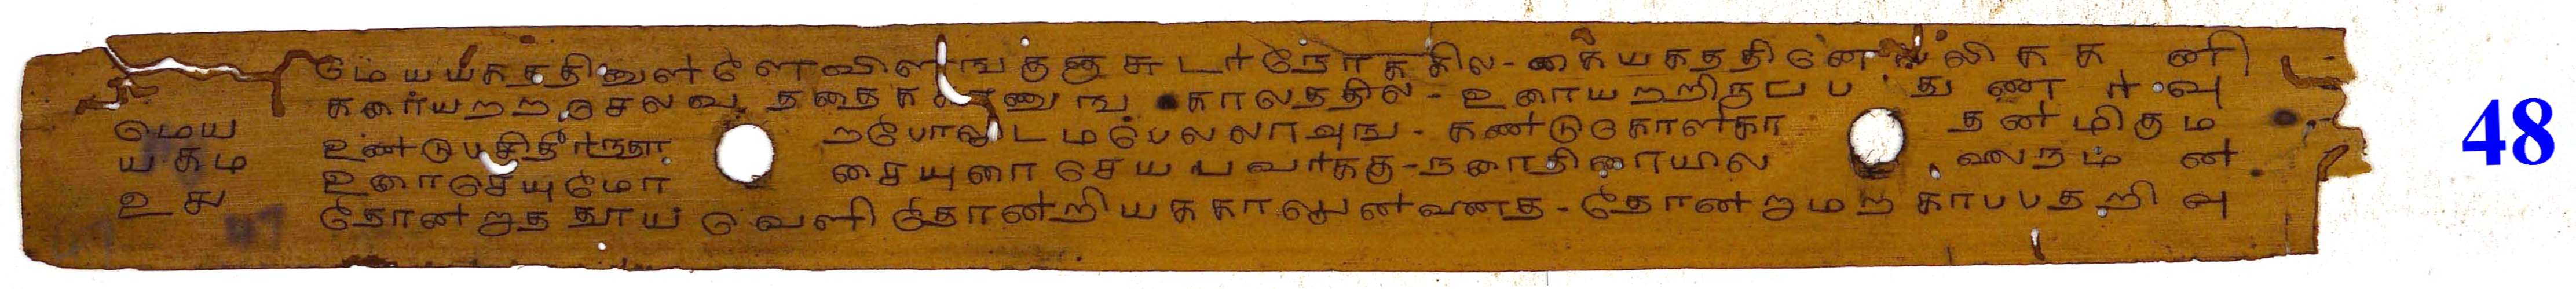 மெய
யகம
உசு
மெயயகததினுள்ளெவிளஙகுகுசுடர்நோககில - கையகததினெலலிகக னி
கரையறறசெலவ ததைக ணுங காலததில - உரையறறிருபப து ண ர்வு
உண்டுபசிதீர்ந்தா றபோலுடமபெலலாவுங - கண்டுகொள்கா தன்மிகும
உரைசெயுமோ சையுரைசெயபவர்ககு - நரைதிரையில லைநம ன்
தோன்றாத தூய வெளிதோன்றியககாலுன்னைத - தோன்றாமறகாபபதறிவு